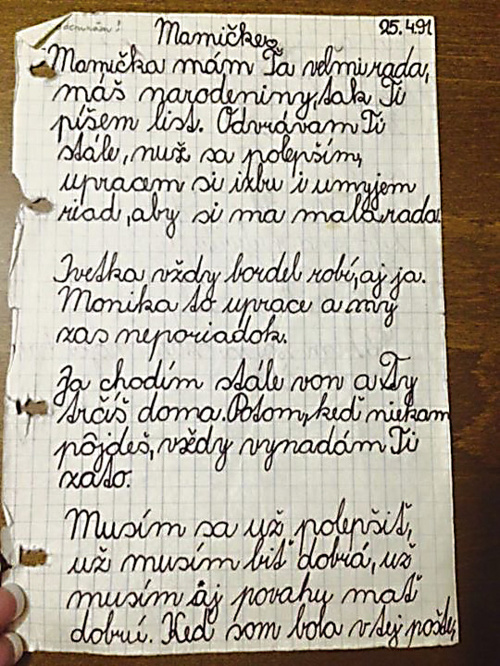 25.4.91
Mamičke
Mamička mám Ťa veľmi rada,
máš narodeniny, tak Ti
píšem list. Odvrávam Ti
stále, nuž sa polepším,
upracem si izbu i umyjem
riad, aby si ma mala rada.
Ivetka vždy bordel robí, aj ja.
Monika to uprace a my
zas neporiadok.
Ja chodím stále von a Ty
trčíš doma. Potom, keď niekam
pôjdeš, vždy vynadám Ti
zato.
Musím sa už polepšiť,
už musím biť dobrá, už
musím aj povahu mať
dobrú. Keď som bola v tej pošte,